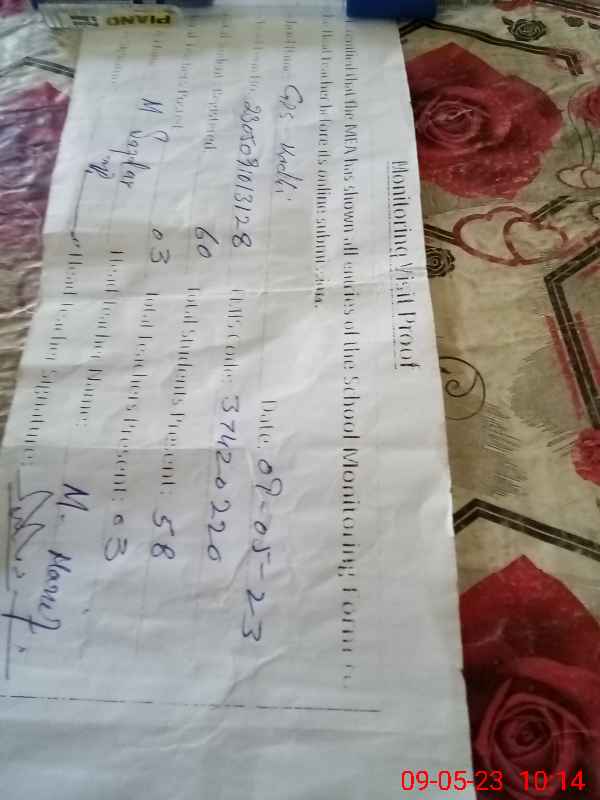 PIANO
Monitoring Visit Proof
certified that the MEA has shown all entries of the School Monitoring Form to
the Head Teacher before its online submission.
Date: 09-05-23
2305091013128 EMIS Code: 37420220
Registered 60 Total Students Present: 58
03 Total Teachers Present: 03
M Head Teacher Name: M. Hanif
Head Teacher Signature:
09-05-23 10:14